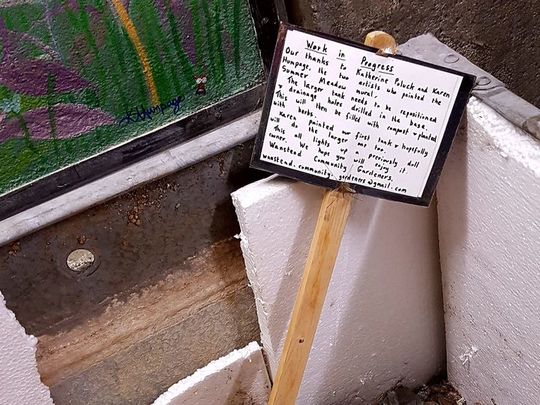 Work in Progress
Our thanks to Katherine Poluck and Karen
Humpage, the two artists who painted the
Summer Meadow mural.
The larger tank needs to be repositioned
& drainage holes drilled in the base.
It will then be filled with compost & planted
with
Karen painted our first tank & hopefully
will do the larger one too.
As this lights up a previously dull
area. We hope you will enjoy it.
Wanstead Community Gardeners.
wanstead.community.gardeners@gmail.com
KHumpage